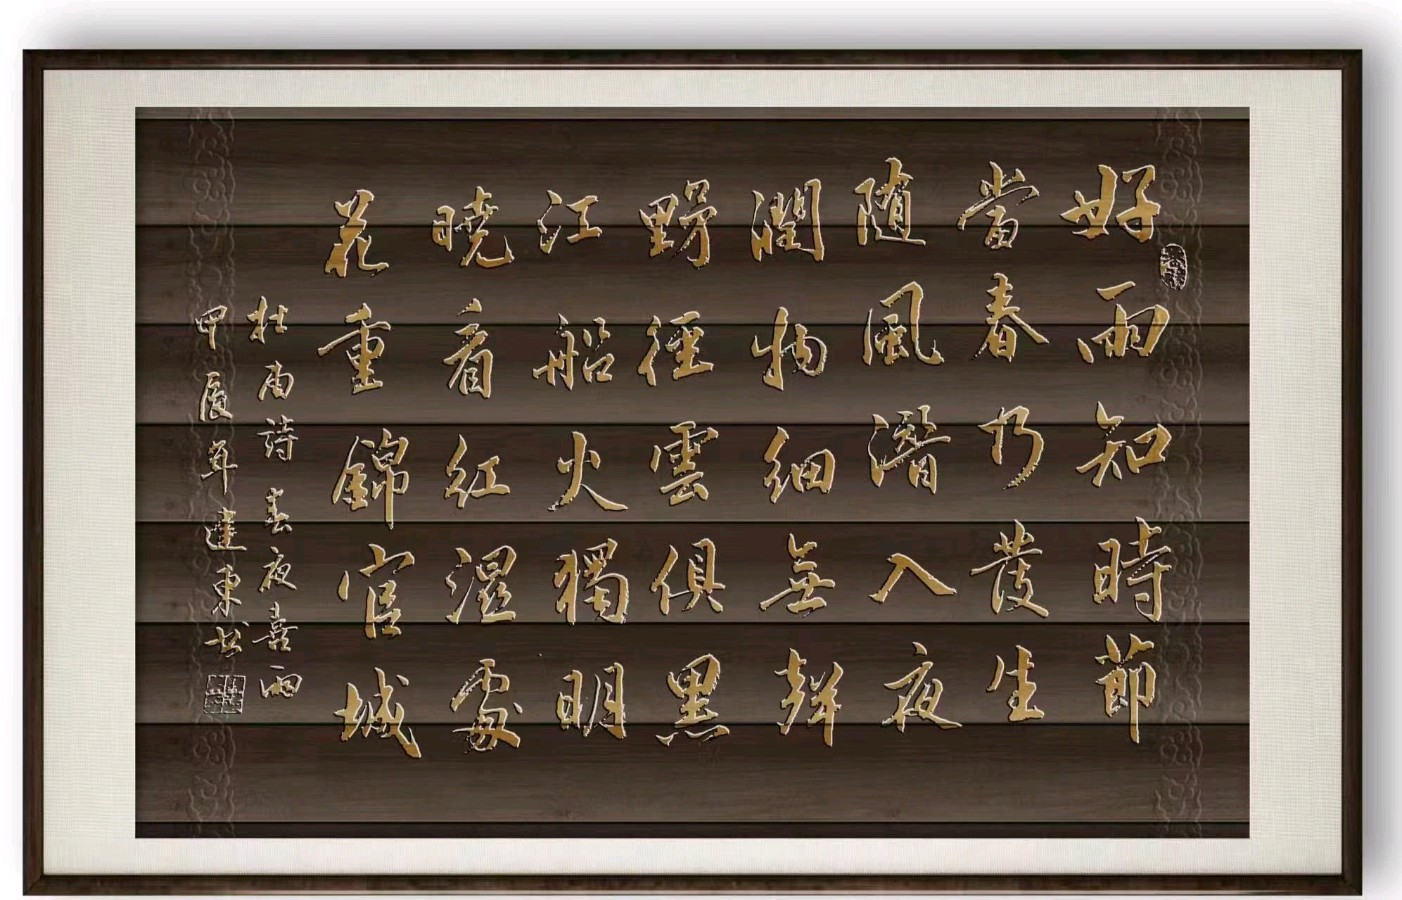 好雨知時節
當春乃發生
随風潛入夜
潤物細無聲
野徑雲俱黑
江船火獨明
曉看紅濕處
花重錦官城
杜甫詩春夜喜雨
甲辰年建東书